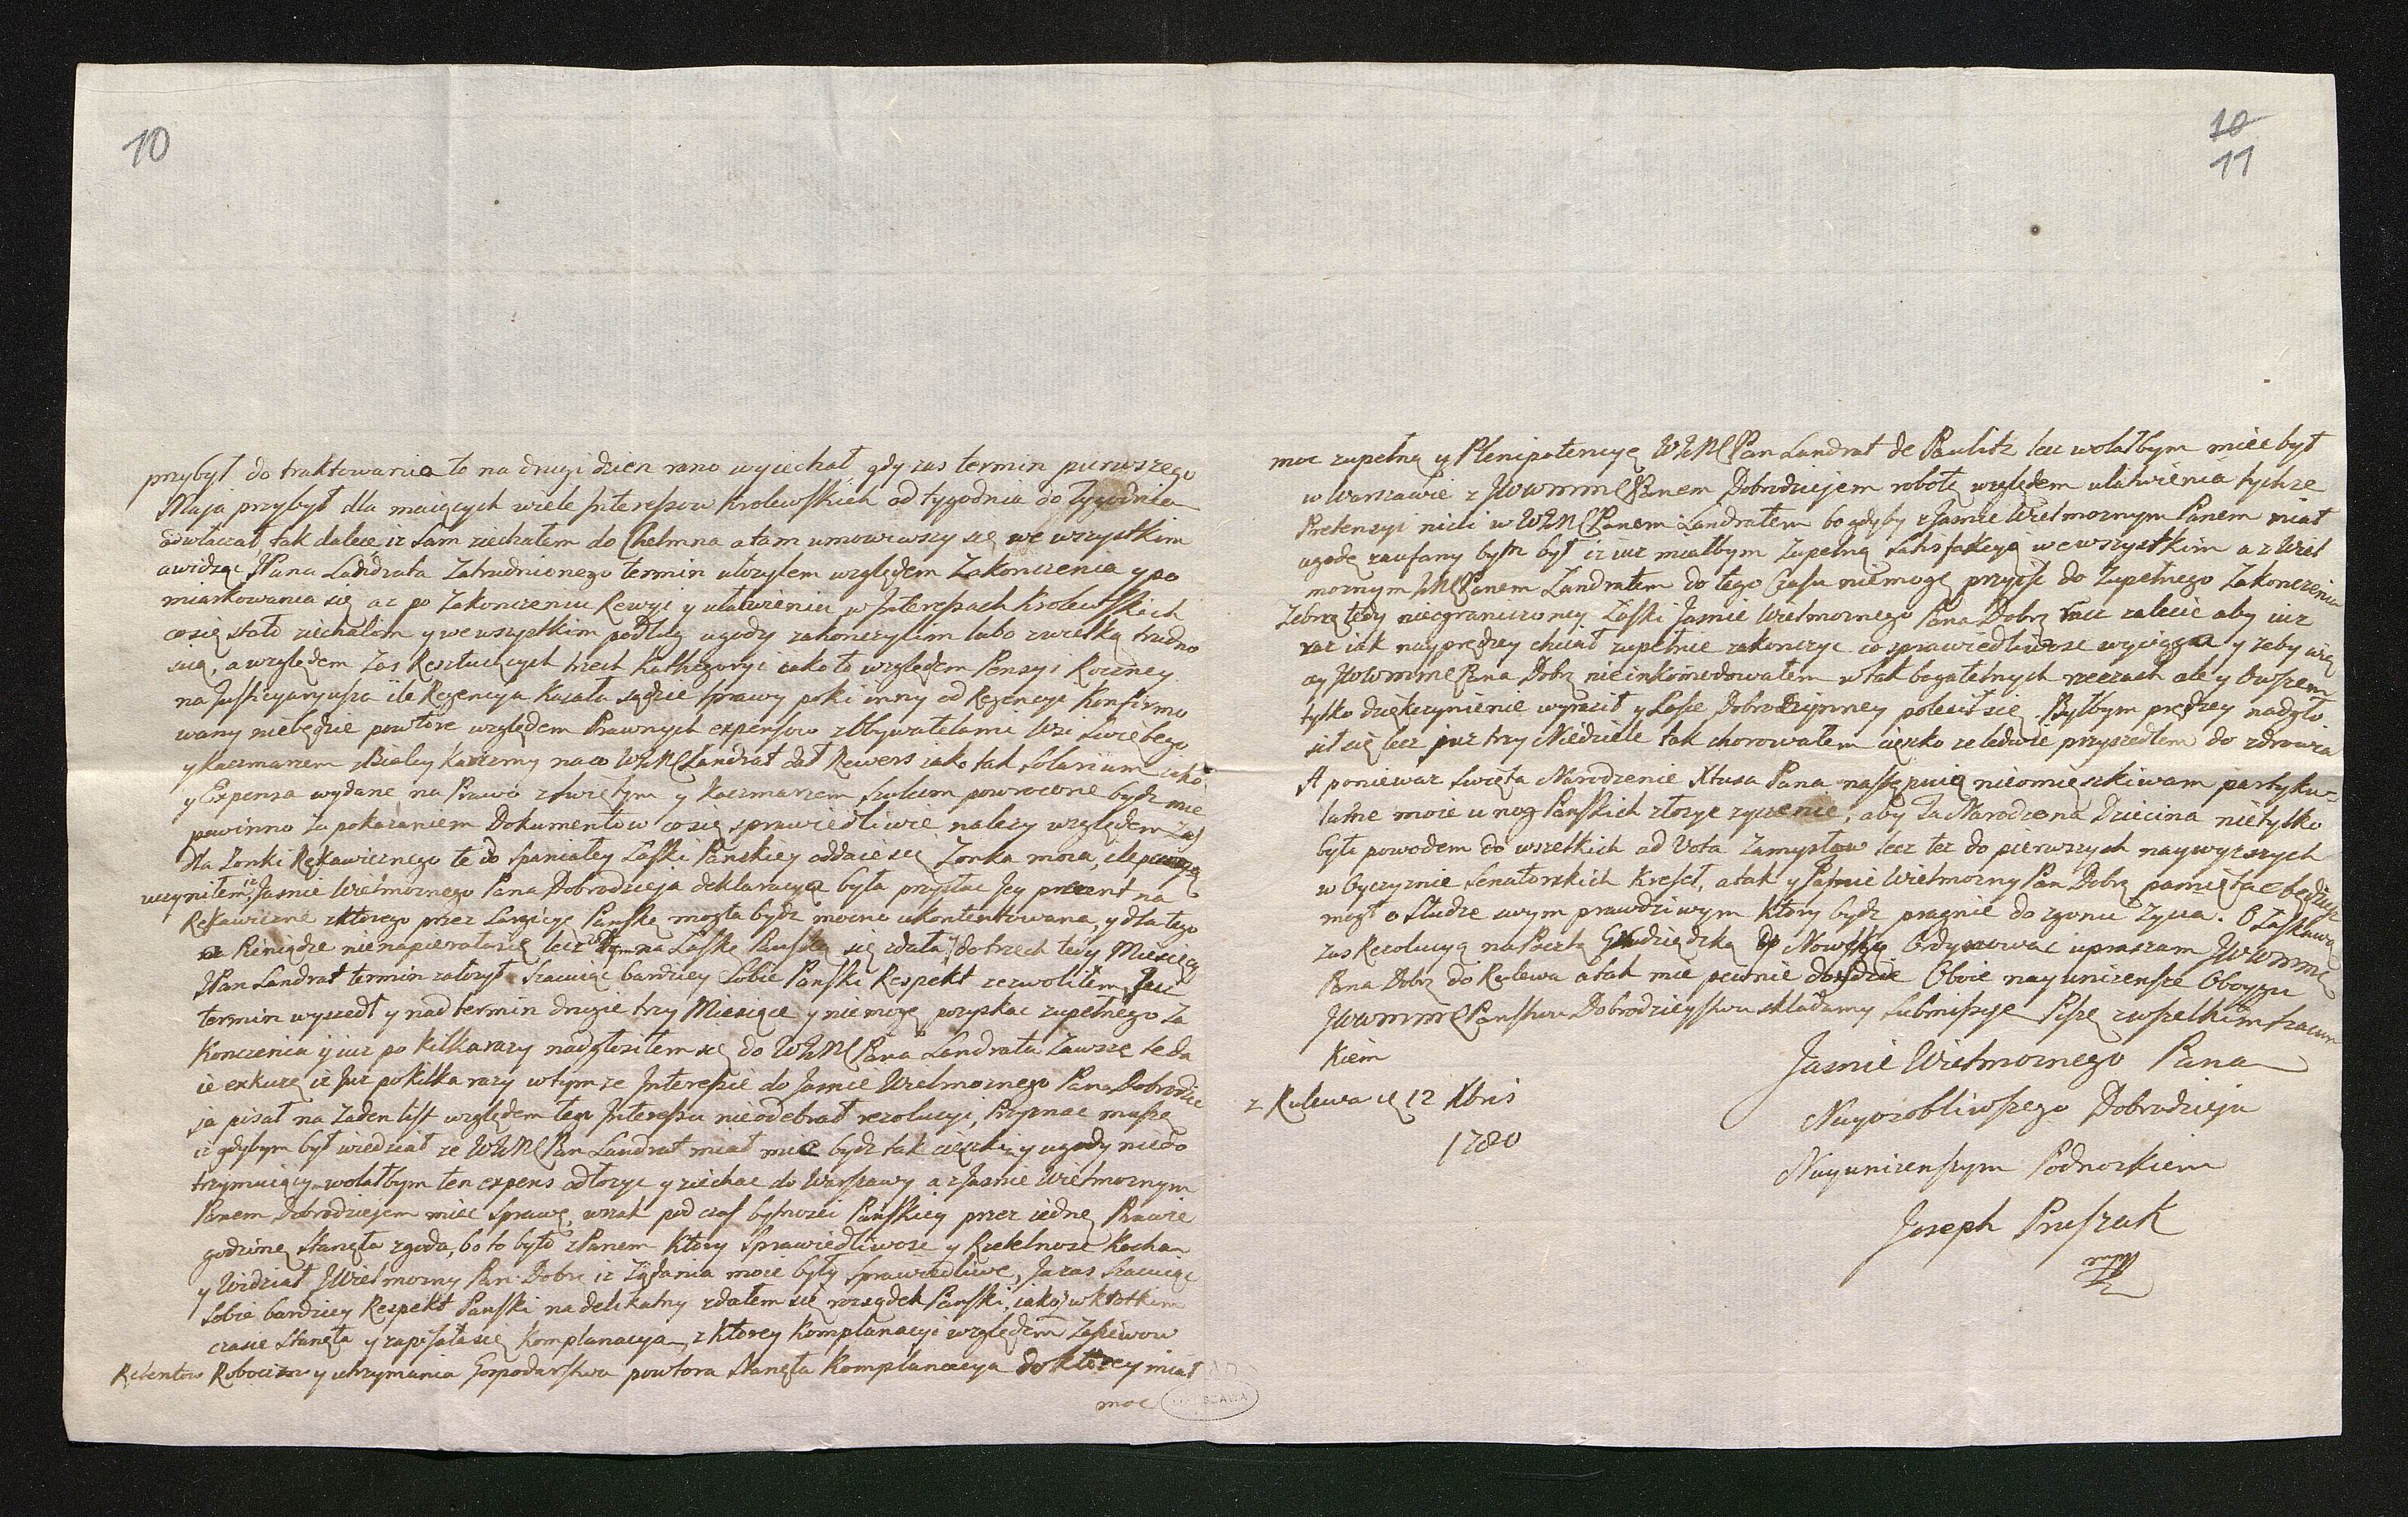 10
przybył do traktowania to na drugi dzien rano wyiechał gdy zas termin pierwszego
Maja przybył dla maiących wiele Interessow Krolewskich od tygodnia do Tygodnia
odwłaczał, tak dalece iz sam ziechałem do Chełmna a tam umowiwszy się we wszystkim
a widząc JPana Landrata Zatrudnionego termin ułozyłem względem Zakonczenia y po
miarkowania się az po Zakonczeniu Rewyi y ułatwieniu w Interessach Krolewskich
co się stało ziechałem y we wszystkim podług ugody zakonczylim lubo z wielką trudno
scią, a względem zas Resztuiących trzech Kathegoryi iako to względem Pensyi Roczney
na Justycyaryusza ile Regencya Kazała sądzic sprawy poki inny od Regencyi Konfirmo
wany niebędzie powtore względem Prawnych expensow z Obywatelami Wsi Swiętego
y Kaczmarzem z Biały Karczmy na co WJMC Landrat dał Rewers iako tak Solarium iako
y Expensa wydane na Prawo z Swiętym y Kaczmarzem powrocone bydz mie
powinno za pokazaniem Dokumentow co się sprawiedliwie nalezy względem Zas
dla Zonki Rękawicznego te do spaniałey Łaski Panskiey oddaie się Zonka moia, ile
uczyniłem iz Jasnie Wielmoznego Pana Dobrodzieja deklaracya była przysłac Jey prezent na
Rękawiczne z ktorego przez Largicyę Panską mogła bydz mocno ukontentowana, y dla tego
o Pieniądze nienapierała się lecz na Łaskę Panską się zdała, do trzech tedy Miesięcy
JPan Landrat termin załozył Szacuiąc bardziey sobie Panski Respekt zezwoliłem, Juz
termin wyszedł y nad termin drugie trzy Miesiące y niemogę pozyskac zupełnego Za
Konczenia y iuz po kilka razy nadgłosiłem się do WJMC Pana Landrata Zawsze te da
ie exkuzę iz Juz po kilka razy w tymze Interessie do Jasnie Wielmoznego Pana Dobrodzie
ja pisał na Zaden list względem tego Interessu nieodebrał rezolucyi, Przyznac muszę
iz gdybym był wiedział ze WJMC Pan Landrat miał mie bydz tak cięzki y ugody niedo
trzymuiący wolałbym ten expens odłozyc y ziechac do Warszawy a z Jasnie Wielmoznym
Panem Dobrodziejem miec Sprawę, wszak pod czas bytnosci Panskiey przez iedną Prawie
godzinę stanęła zgoda, bo to było z Panem Ktory Sprawiedliwosc y Rzetelnosc Kocha
y Widział JWielmozny Pan Dobr iz Ządania moie były sprawiedliwe, Ja zas Szacuiąc
Sobie bardziey Respekt Panski na delikatny zdałem się rozsądek Panski, iakoz w krotkim
czasie stanęła y zapisała się Komplanacya, z Ktorey Komplanacyi względem Zasiewow
Retentow Robocizn y utrzymania Gospodarstwa powtora stanęła Komplanacya do ktorey miał
moc
WARSZAWA
10
11
moc zupełną y Plenipotencyę WJMC Pan Landrat de Paulitz lecz wolałbym miec był
w Warszawie z JWWMMC Panem Dobrodziejem robotę względem ułatwienia tychze
Pretensyi nizli w WJMC Panem Landratem bo gdyby z Jasnie Wielmoznym Panem miał
ugodę zaufany bym był iz iuz miałbym zupełną Satisfakcyą we wszystkim a z Wiel
moznym JMC Panem Landratem do tego Czasu niemogę przyisc do Zupełnego Zakonczenia
Zebrzę tedy nieograniczoney Łaski Jasnie Wielmoznego Pana Dobr racz zalecic aby iuz
raz iak nayprędzey chciał zupełnie zakonczyc co sprawiedliwosc wyciąga y zeby wię
cey JWWMMC Pana Dobr nieinkomodowałem w tak bagatelnych rzeczach ale y Owszem
tylko dziękczynienie wyraził y Łasce Dobroczynney polecił się. Byłbym prędzey nadgło
sił się lecz juz trzy Niedziele tak chorowałem cięzko ze ledwie przyszedłem do zdrowia
A poniewaz Swięta Narodzenie Xtusa Pana następuią nieomięszkiwam partyku-
larne moie u nog Panskich złozyc zyczenie, aby Ta Narodzona Dziecina nietylko
była powodem do wszelkich od Vota Zamysłow lecz tez do pierwszych naywyzszych
w Oyczyznie Senatorskich Krzeseł, a tak y Jasnie Wielmozny Pan Dobr pamiętac będziesz
mogł o Słudze swym prawdziwym Ktory bydz pragnie do zgonu Zycia. O Łaskawą
zas Rezolucyą na Pocztę Grudziądzką Nowską Ordynowac upraszam JWWMMC
Pana Dobr do Rulewa a tak mie pewnie doydzie Oboie nayunizensze Oboygu
JWWMMC Panstwu Dobrodzieystwu składamy submissye Piszę z wszelkim szacun
kiem
Jasnie Wielmoznego Pana
Nayosobliwszego Dobrodzieja
Nayunizenszym Podnozkiem
Joseph Pruszak
mpp
z Rulewa d 12 Xbris
1780